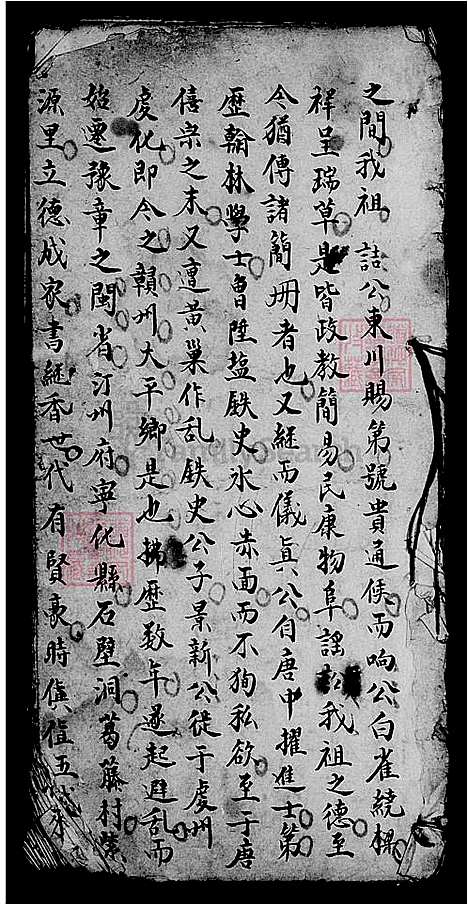 之間我祖 詰公東川賜第號貴通候而响公白雀繞樑
祥呈瑞草是皆政教簡易民康物阜謠 我祖之德至
今猶傳諸簡冊者也又継而儀真公自唐中擢進士第
歷翰林學士曾陞盐鉄史氷心赤面而不狥私欲至于唐
僖宗之末又遭黃巢作乱鉄史公子景新公徒于虔州
虔化即今之贛州大平鄉是也 歷数年遂起避乱而
始遷豫章之閩省汀州府寧化縣石壁洞葛藤村
源里立德成家書継香世代有賢豪時 值五